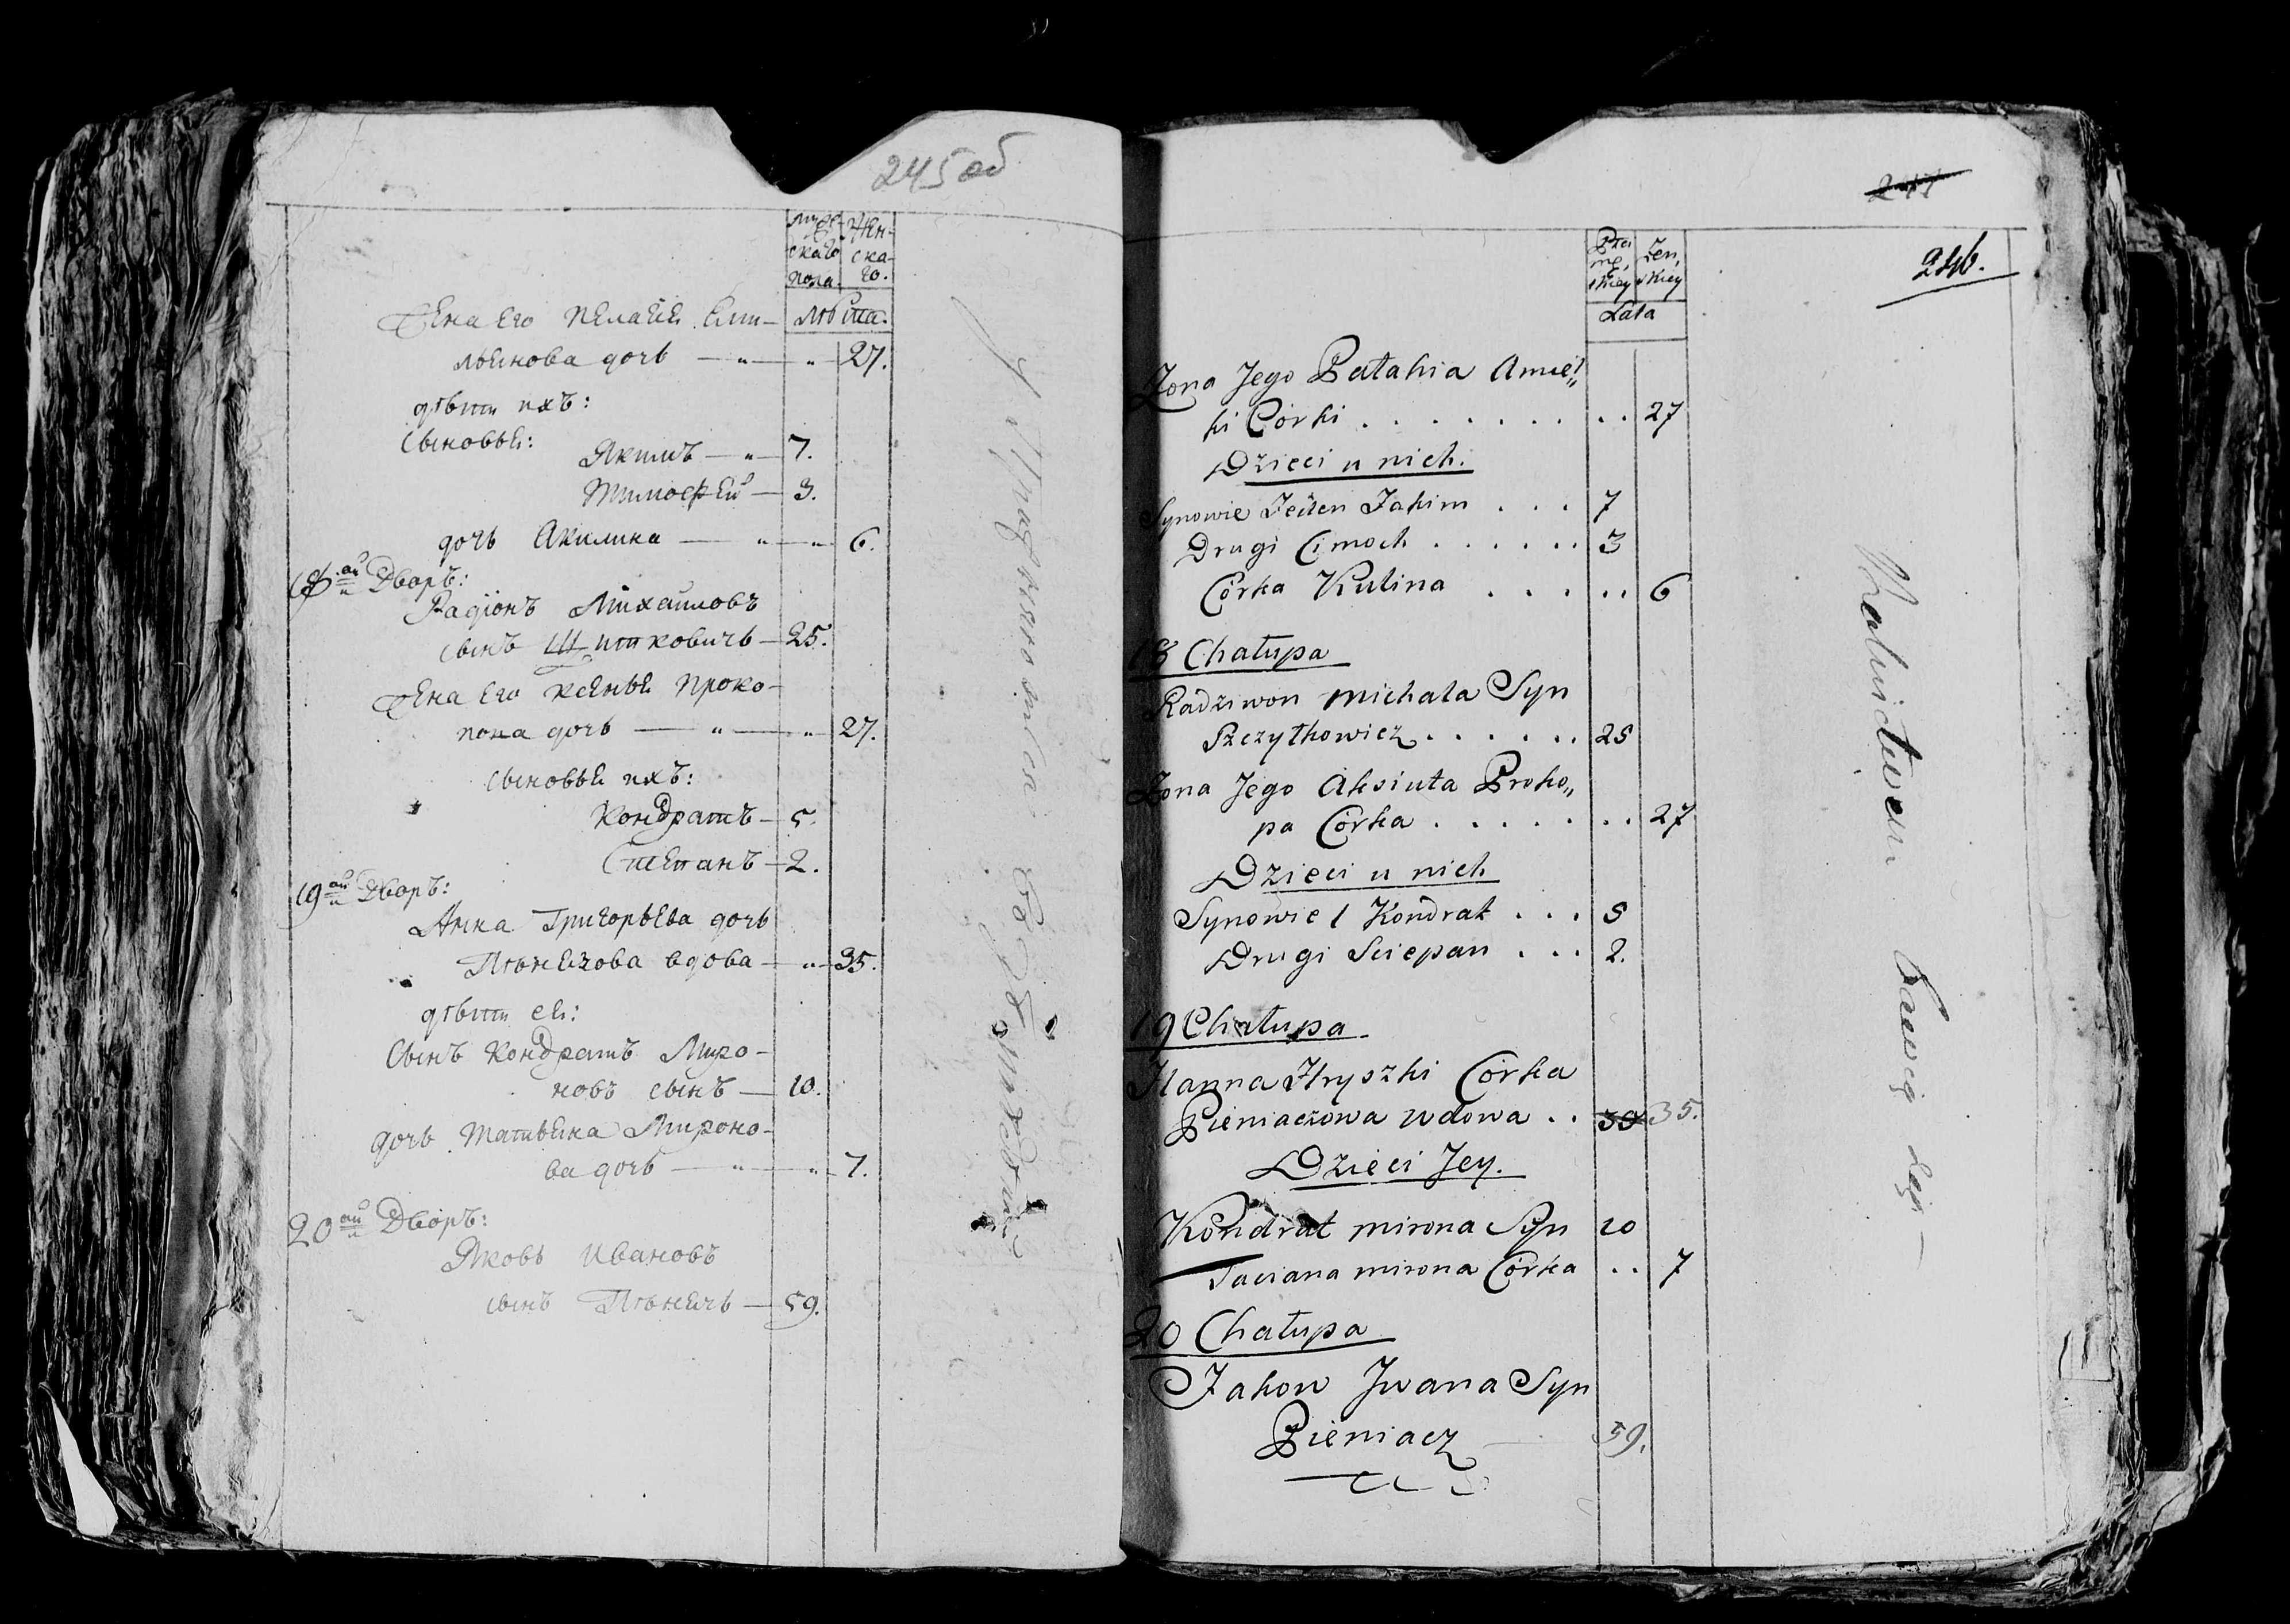 245 об
муже-
скаго
пола.
жен-
ска-
го.
лѣта.
Жена Его Пелагiя Еми-
льянова дочь — „ — „ 27.
дѣти ихъ:
Сыновья:
Якимъ — „ — 7.
Тимофей — 3.
дочь Акилина — „ — „ 6.
18ай Дворъ:
Радiонъ Михайловъ
сынъ Щитковичь — 25.
Жена Его Ксенья Проко-
пова дочь — „ — „ 27.
Сыновья ихъ:
Кондратъ — 5.
Степанъ — 2.
19ай Дворъ:
Анна Григорьева дочь
Пѣнязова вдова — „ — 35.
дѣти ея:
Сынъ Кондратъ Миро-
новъ сынъ — 10.
дочь Татьяна Мироно-
ва дочь — „ — „ 7.
20ай Дворъ:
Яковъ Ивановъ
сынъ Пѣнячь — 59.
241
246.
Męs,
skiey
Żeń,
skiey
Lata
Żona Jego Pałahia Amel„
ki Córki . . . . . . . . . 27
Dzieci u nich.
Synowie Jeden Jakim . . . 7
Drugi Cimoch . . . . . . 3
Córka Kulina . . . . . . 6
18 Chałupa
Radziwon Michała Syn
Szczytkowicz . . . . . . 25
Żona Jego Aksiuta Proko„
pa Córka . . . . . . . 27
Dzieci u nich
Synowie 1 Kondrat . . . 5
Drugi Sciepan . . . 2.
19 Chałupa
Hanna Hryszki Córka
Pieniaczowa wdowa . . 30 35.
Dzieci Jey.
Kondrat Mirona Syn 10
Taciana Mirona Córka . . 7
20 Chałupa
Jakow Jwana Syn
Pieniacz — 59.